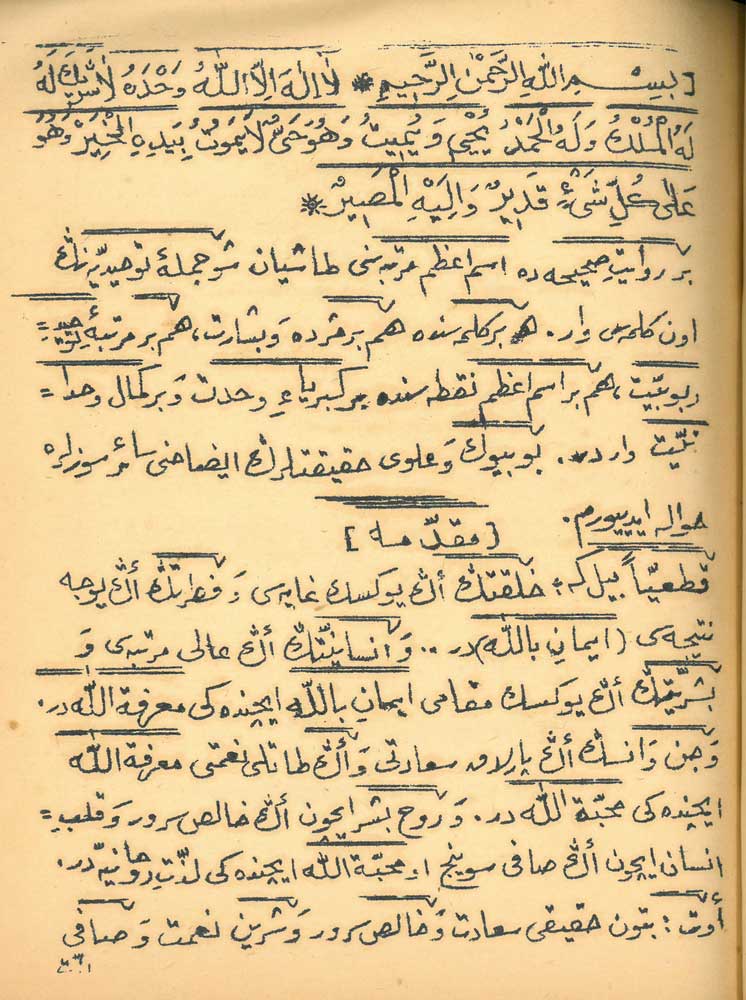 [بِسْمِ اللّٰهِ الرَّحْمٰنِ الرَّحِيمِ * لَا اِلٰهَ اِلَّا اللّٰهُ وَحْدَهُ لَا شَرِيكَ لَهُ
لَهُ الْمُلْكُ وَلَهُ الْحَمْدُ يُحْيِى وَيُمِيتُ وَهُوَ حَىٌّ لَا يَمُوتُ بِيَدِهِ الْخَيْرُ وَهُوَ
عَلٰى كُلِّ شَىْءٍ قَدِيرٌ وَاِلَيْهِ الْمَصِيرُ *
بر روايتِ صحيحه ده اسم اعظم مرتبه سنى طاشيان شو جملۀ توحيديّه نڭ
اون كلمه سى وار. هر بر كلمه سنده هم بر مژده وَبشارت، هم بر مرتبۀ توحيدِ =
ربوبيّت، هم بر اسم اعظم نقطه سنده بر كبرياءِ وحدت وَبر كمال وحدا =
نيّت واردر. بو بيوك وَعلوى حقيقتلرڭ ايضاحنى سائر سوزلره
حواله ايدييورم.
[مقدّمه]
قطعيّاً بيل كه: خلقتڭ اڭ يوكسك غايه سى وَ فطرتڭ اڭ يوجه
نتيجه سى (ايمان باللّٰه)در .. وَانسانيّتڭ اڭ عالى مرتبه سى وَ
بشريّتڭ اڭ يوكسك مقامى ايمانِ باللّٰه ايچنده كى معرفة اللّٰه در.
وَجن وَانسڭ اڭ پارلاق سعادتى وَاڭ طاتلى نعمتى معرفة اللّٰه
ايچنده كى محبّة اللّٰه در. وَروح بشر ايچون اڭ خالص سرور وَقلبِ =
انسان ايچون اڭ صافى سوينج او محبّة اللّٰه ايچنده كى لذّتِ روحانيّه در.
أوت: بتون حقيقى سعادت وَخالص سرور وَشيرين نعمت وَصافى